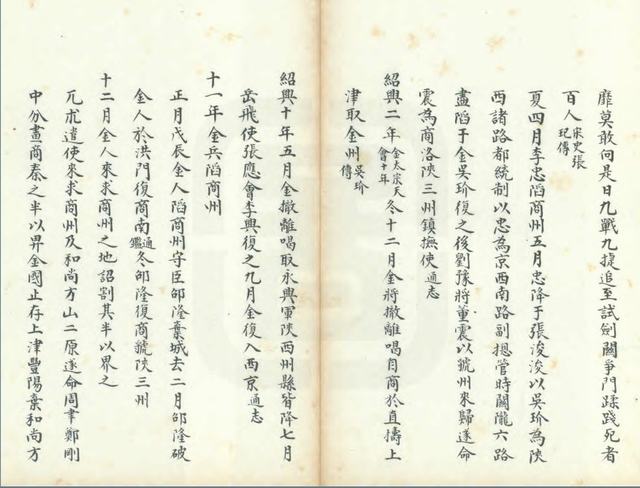 靡莫敢向是日九戰九捷追至試劍關爭門蹂踐死者
百人宋史張玘傳
夏四月李忠陷商州五月忠降于張浚浚以吳玠為陝
西諸路都統制以忠為京西南路副摠管時關隴六路
盡陷于金吳玠復之後劉豫將董震以虢州來歸遂命
震為商洛陝三州鎮撫使通志
紹興二年金太宗天會十年冬十二月金將撤離喝自商於直擣上
津取金州吳玠傳
紹興十年五月金撤離喝取永興軍陝西州縣皆降七月
岳飛使張應會李興復之九月金復入西京通志
十一年金兵陷商州
正月戊辰金人陷商州守臣邵隆棄城去二月邵隆破
金人於洪門復商南通鑑冬邵隆復商虢陝三州
十二月金人來求商州之地詔割其半以畀之
兀朮遣使來求商州及和尚方山二原遂命周聿鄭剛
中分畫商秦之半以畀金國止存上津豐陽棄和尚方